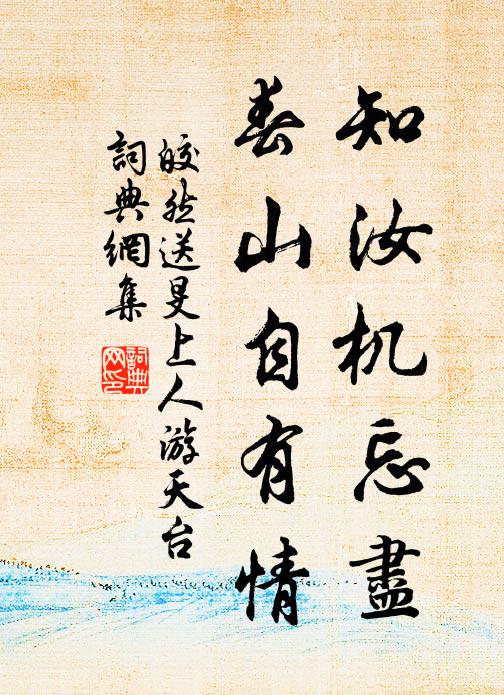 知汝机忘盡
春山自有情
皎然送旻上人游天台
詞典網集
詞典網印